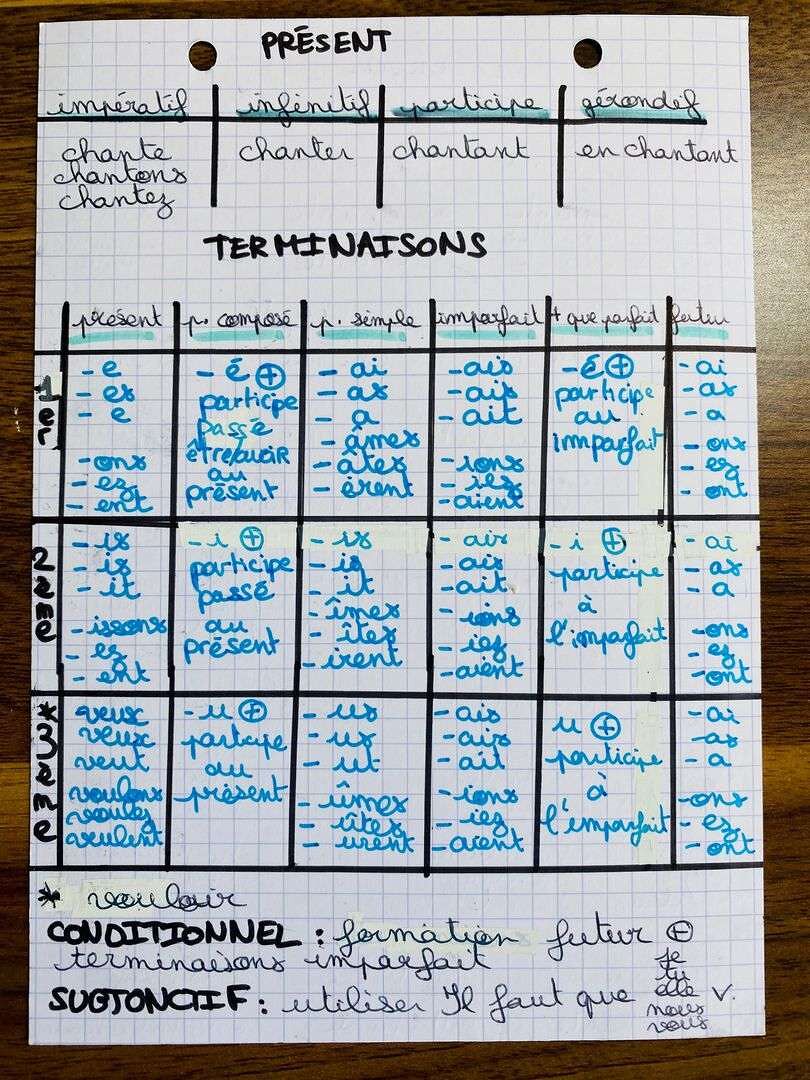 PRÉSENT
impératif infinitif participe gérondif
chante chanter chantant en chantant
chantons
chantez
TERMINAISONS
présent p. composé p. simple imparfait + que parfait futur
1er
- e
- es
- e
- ons
- ez
- ent
- é ⊕
participe
passé
être/avoir
au
présent
- ai
- as
- a
- âmes
- âtes
- èrent
- ais
- ais
- ait
- ions
- iez
- aient
- é ⊕
participe
au
imparfait
- ai
- as
- a
- ons
- ez
- ont
2ème
- is
- is
- it
- issons
- ez
- ent
- i ⊕
participe
passé
au
présent
- is
- is
- it
- îmes
- îtes
- irent
- ais
- ais
- ait
- ions
- iez
- aient
- i ⊕
participe
à
l'imparfait
- ai
- as
- a
- ons
- ez
- ont
*3ème
veux
veux
veut
voulons
voulez
veulent
- u ⊕
participe
au
présent
- us
- us
- ut
- ûmes
- ûtes
- urent
- ais
- ais
- ait
- ions
- iez
- aient
u ⊕
participe
à
l'imparfait
- ai
- as
- a
- ons
- ez
- ont
* vouloir
CONDITIONNEL : formation futur ⊕
terminaisons imparfait
SUBJONCTIF : utiliser Il faut que V.
je
tu
elle
nous
vous